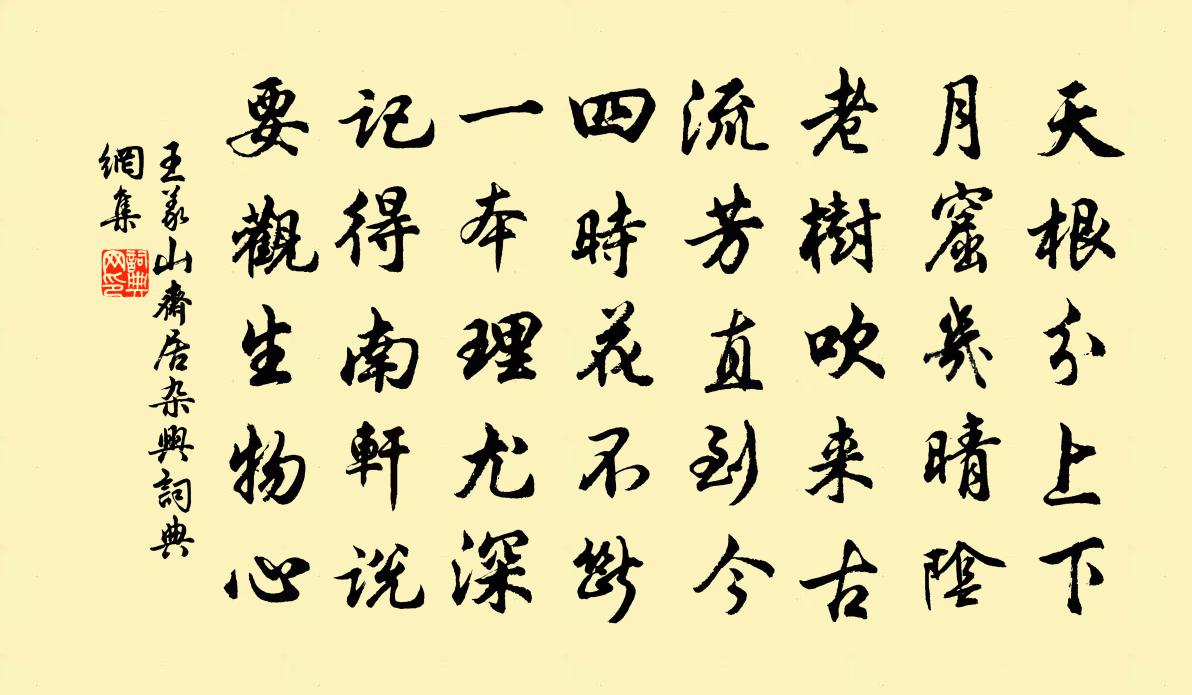 天根分上下
月窟幾晴陰
老樹吹来古
流芳直到今
四時花不斷
一本理尤深
記得南軒説
要觀生物心
王義山齋居杂興詞典
網集
詞典网印